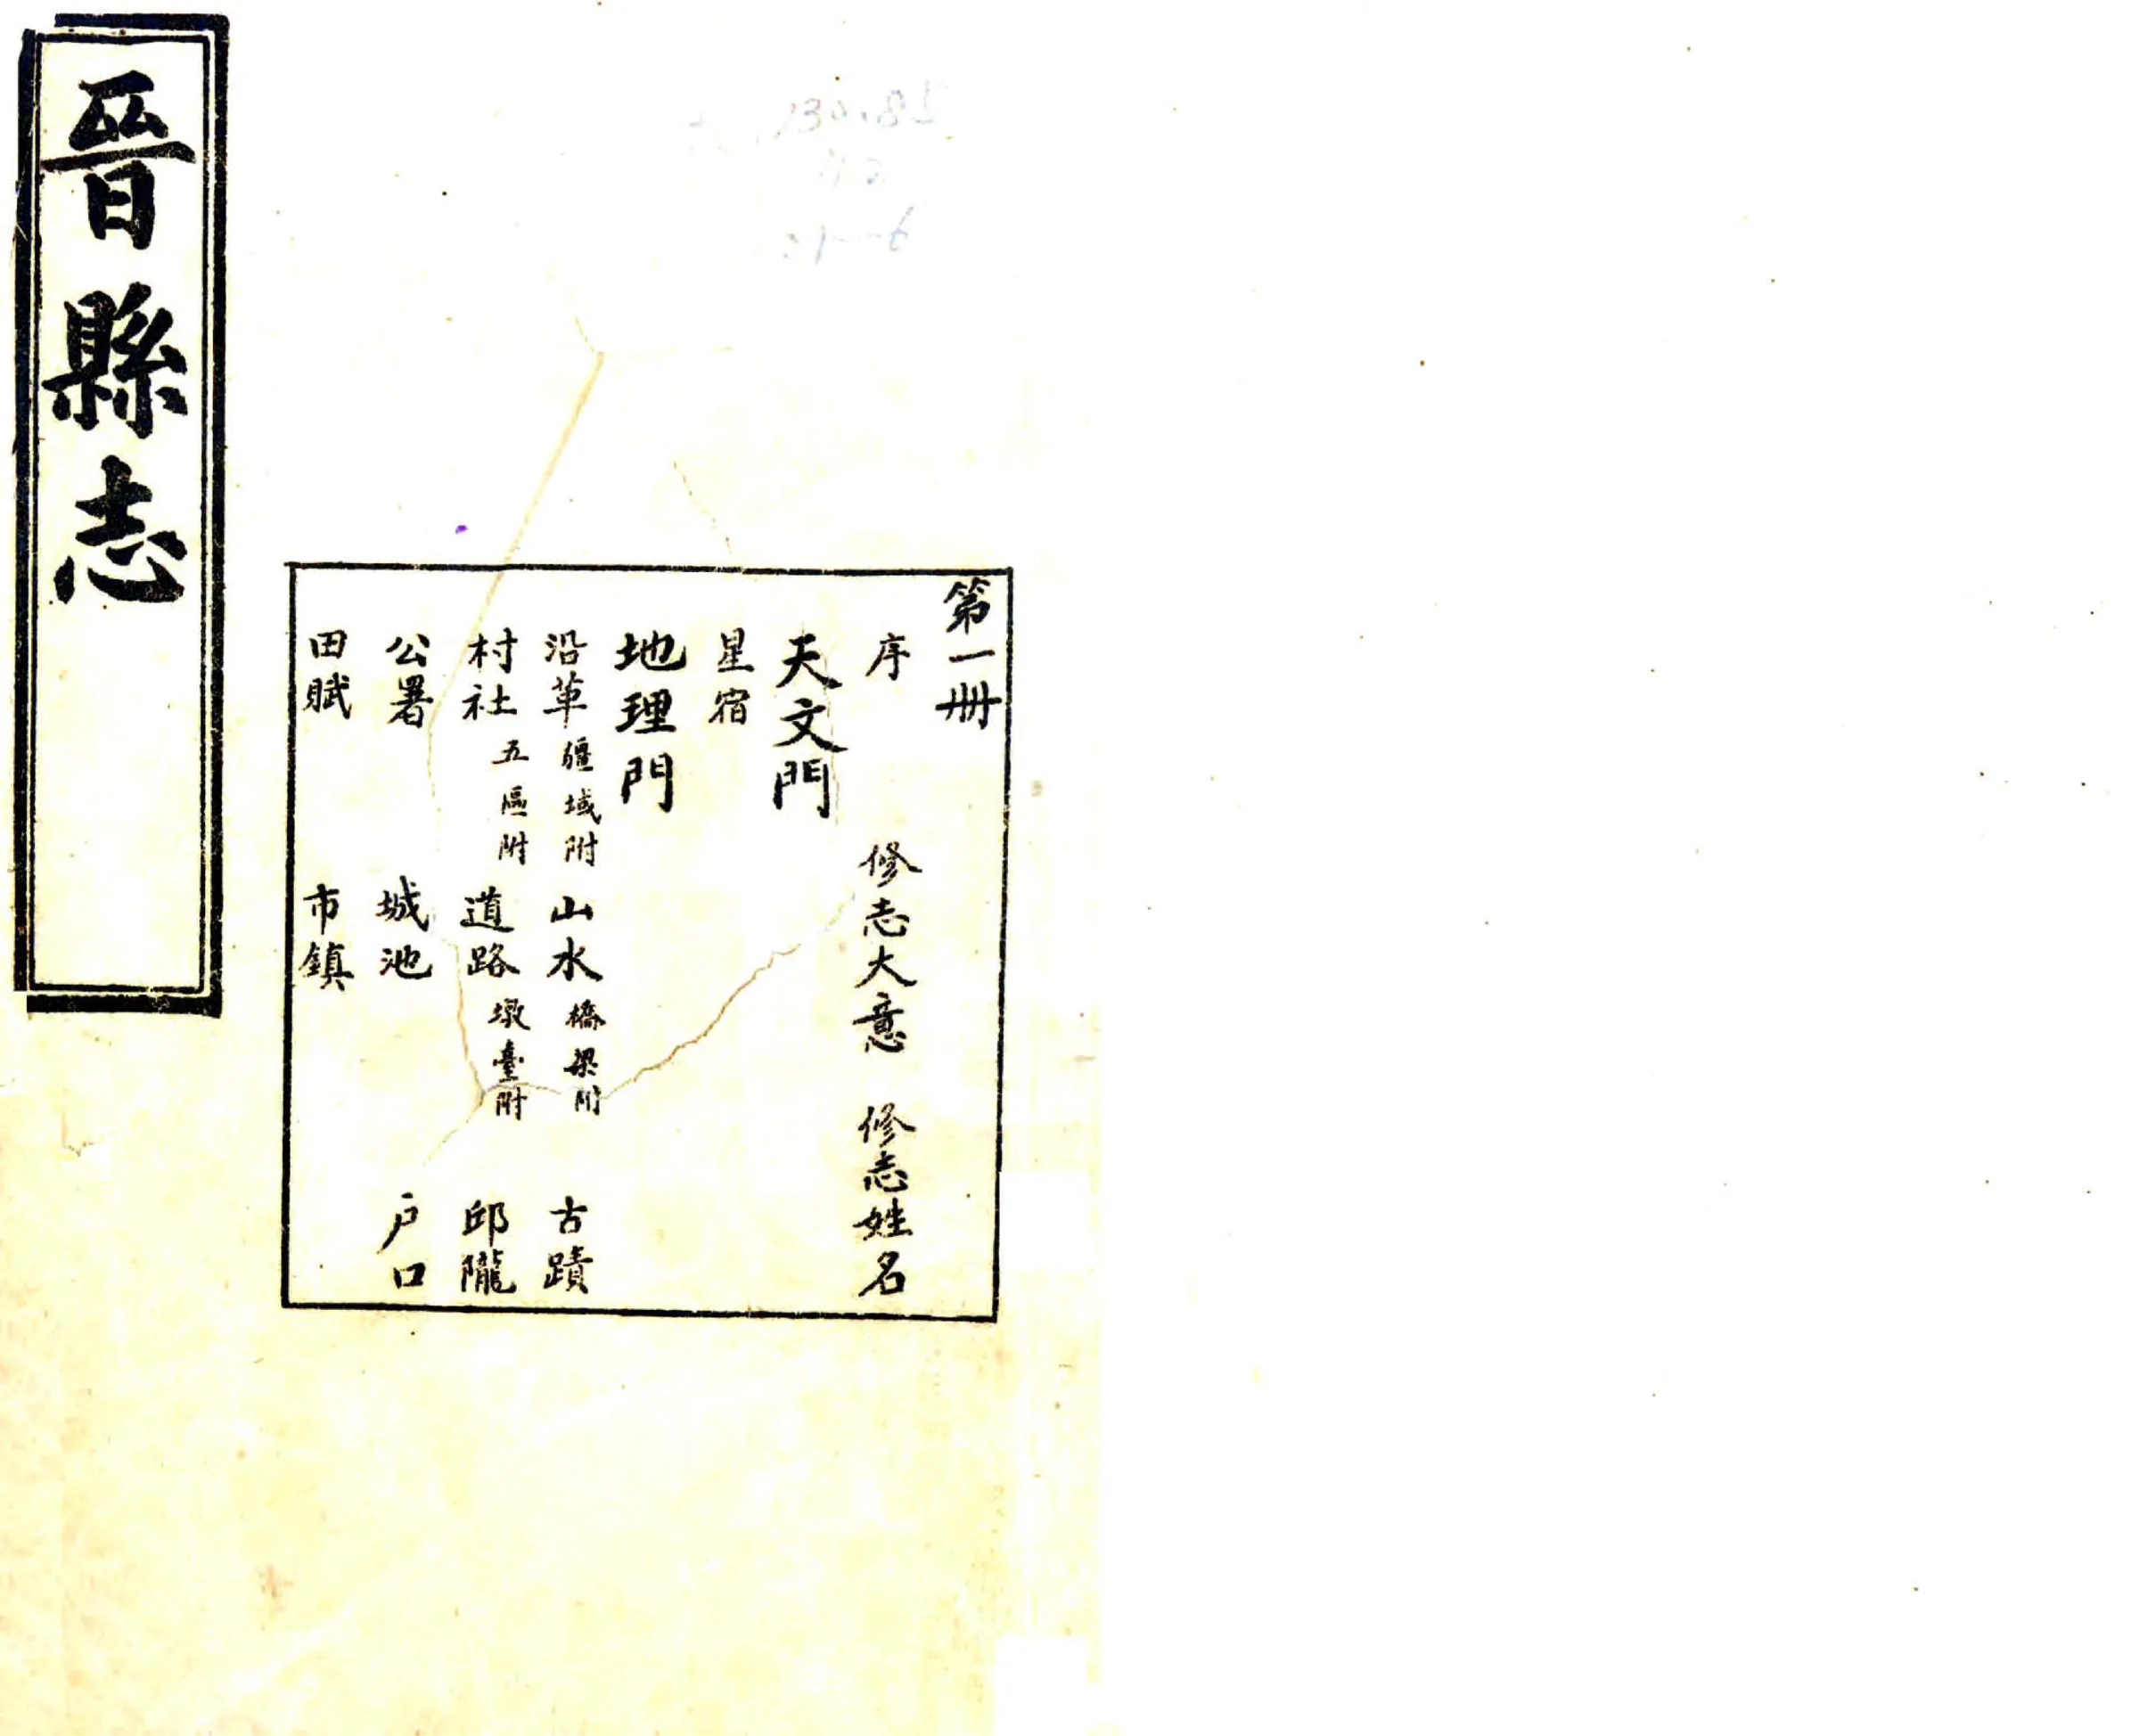 晉縣志
第一冊
序 修志大意 修志姓名
天文門
星宿
地理門
沿革 疆域附 山水 橋梁附 古蹟
村社 五區附 道路 墩臺附 邱隴
公署 城池 戶口
田賦 市鎮